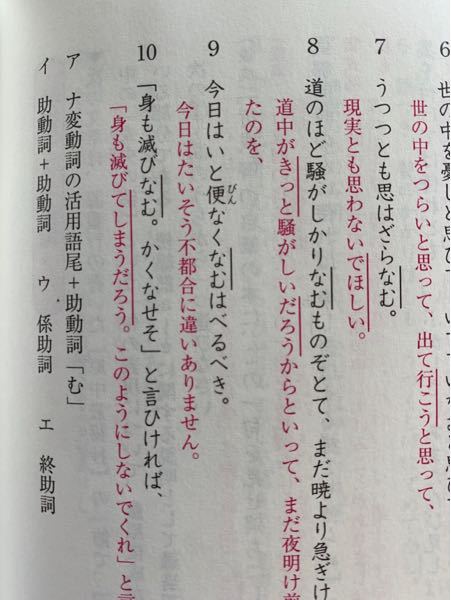 6 世の中を憂しと思ひて、いでていなむと思ひて
世の中をつらいと思って、出て行こうと思って、
7 うつつとも思はざらなむ。
現実とも思わないでほしい。
8 道のほど騒がしかりなむものぞとて、まだ暁より急ぎけ
道中がきっと騒がしいだろうからといって、まだ夜明け前
たのを、
9 今日はいと便なくなむはべるべき。
びん
今日はたいそう不都合に違いありません。
10 「身も滅びなむ。かくなせそ」と言ひければ、
「身も滅びてしまうだろう。このようにしないでくれ」と言
ア ナ変動詞の活用語尾+助動詞「む」
イ 助動詞+助動詞 ウ 係助詞 エ 終助詞